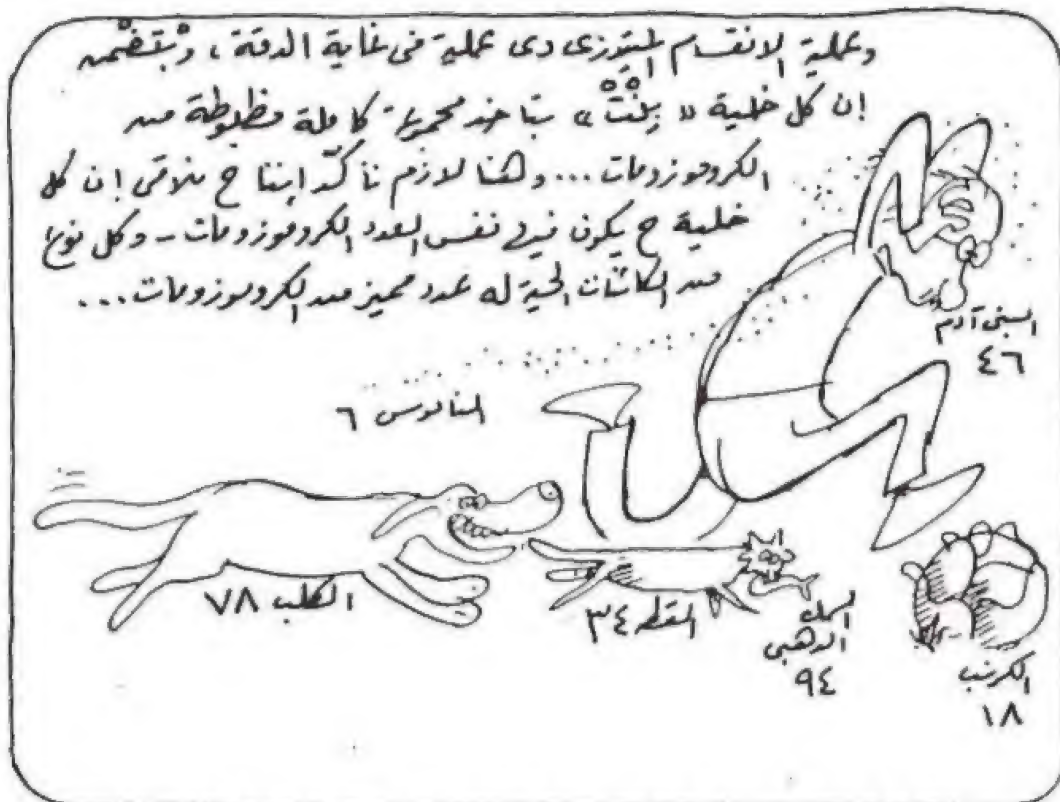 وعملية الانقسام الميتوزى دى عملية فى غاية الدقة، وْبتضْمن
إن كل خلية « بِنْتْ » بتاخد مجموعة كاملة مظبوطة من
الكروموزومات... وهنا لازم نأكّد إننا ح نلاقى إن كل
خلية ح يكون فيها نفس العدد الكروموزومات - وكل نوع
من الكائنات الحية له عدد مميز من الكروموزومات...
البنى آدم
٤٦
الناموس ٦
الكلب ٧٨
القط ٣٤
السمك
الدهبى
٩٤
الكرنب
١٨